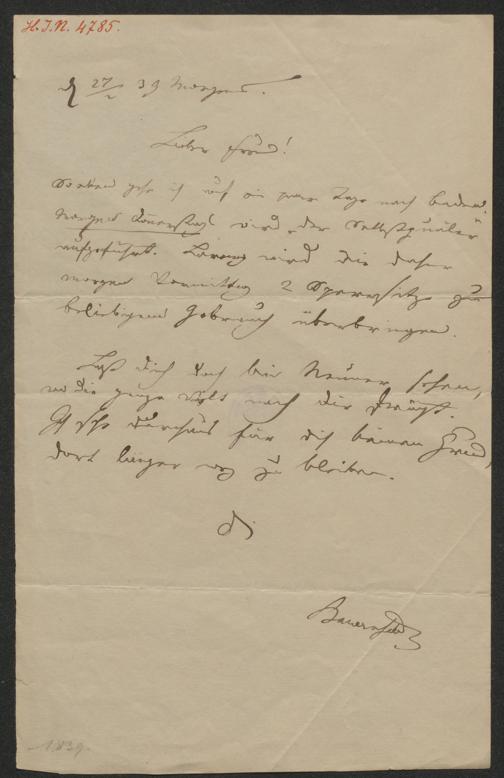 H. I. N. 4785.
d 27/2 39 Morgens.
Lieber Freund!
Soeben gehe ich auf ein paar Tage nach Baden.
Morgen Donnerstag wird der Selbstquäler
aufgeführt. wird die daher
morgen Vormittag 2 Sperrsitze zu
beliebigem Gebrauch überbringen.
Laß dich doch bei Neuner sehen,
wo die ganze Welt nach dir fragt.
Ich sehe durchaus für dich keinen Grund,
dort länger weg zu bleiben.
Bauernfeld
1839.